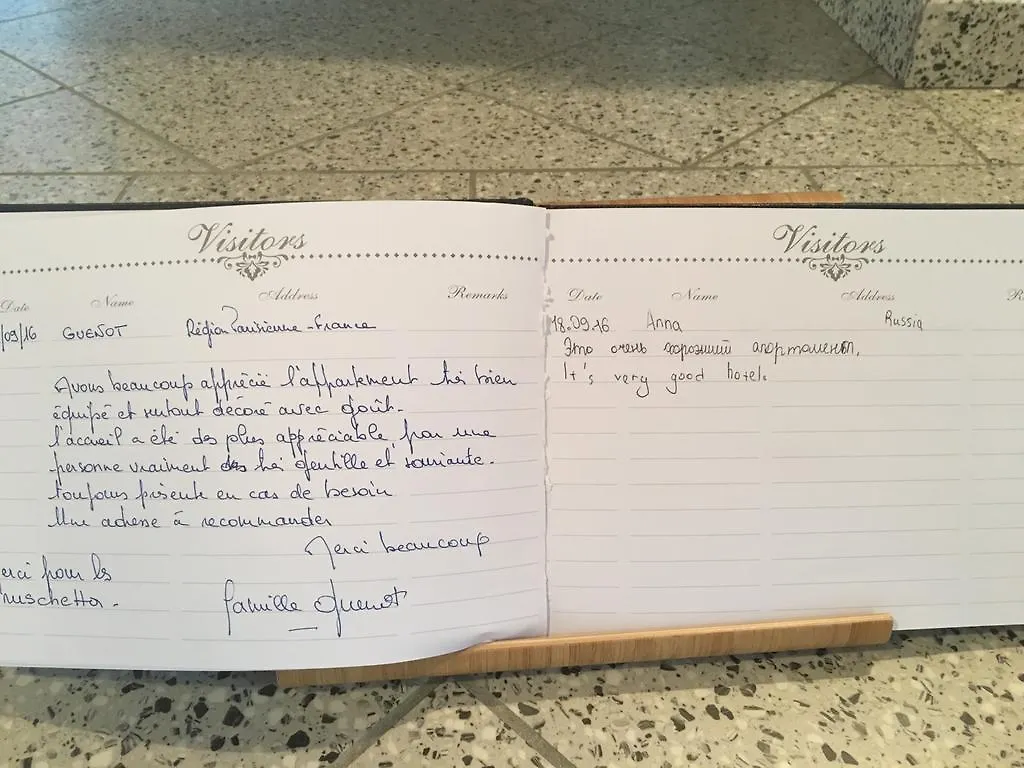 Visitors
Date Name Address Remarks
/09/16 GUENOT Région Parisienne - France
Avons beaucoup apprécié l'appartement très bien
équipé et surtout décoré avec goût.
l'accueil a été des plus appréciable, par une
personne vraiment très gentille et souriante.
toujours présente en cas de besoin
Une adresse à recommander
Merci beaucoup
erci pour les
ruschetta.
famille Guenot
Visitors
Date Name Address R
18.09.16 Anna Russia
Это очень хороший апартамент.
It's very good hotel.